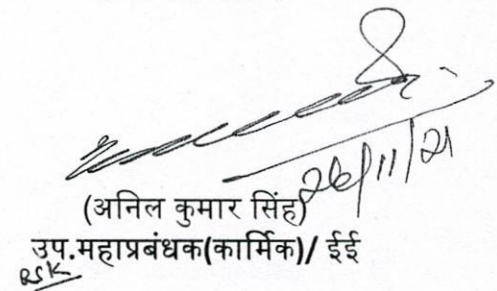 26/11/21
(अनिल कुमार सिंह)
उप.महाप्रबंधक(कार्मिक)/ ईई
RSK